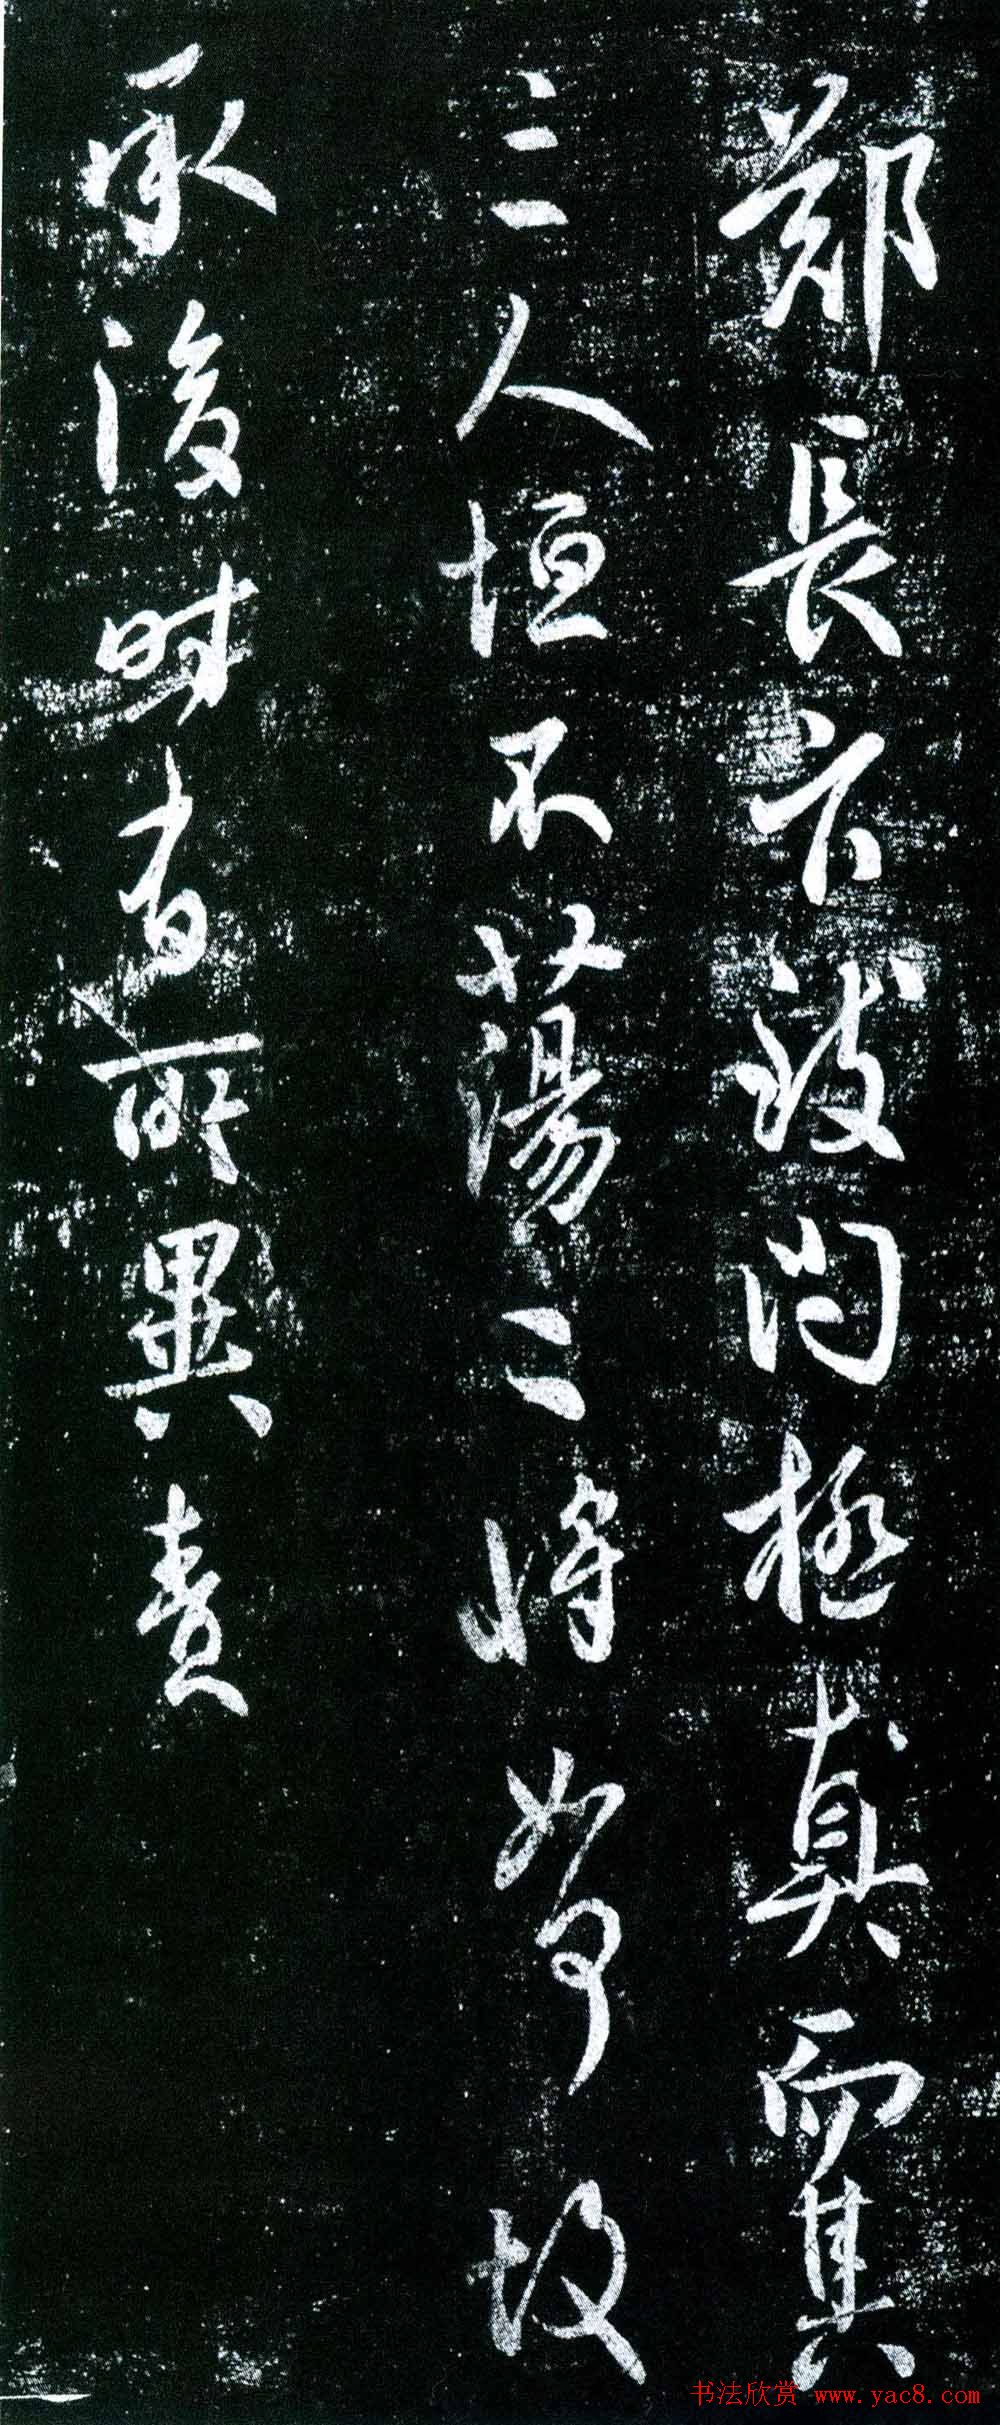 鄭長問極真而其
三人恒不蕩二將如何故
承後時有所異責
书法欣赏 www.yac8.com